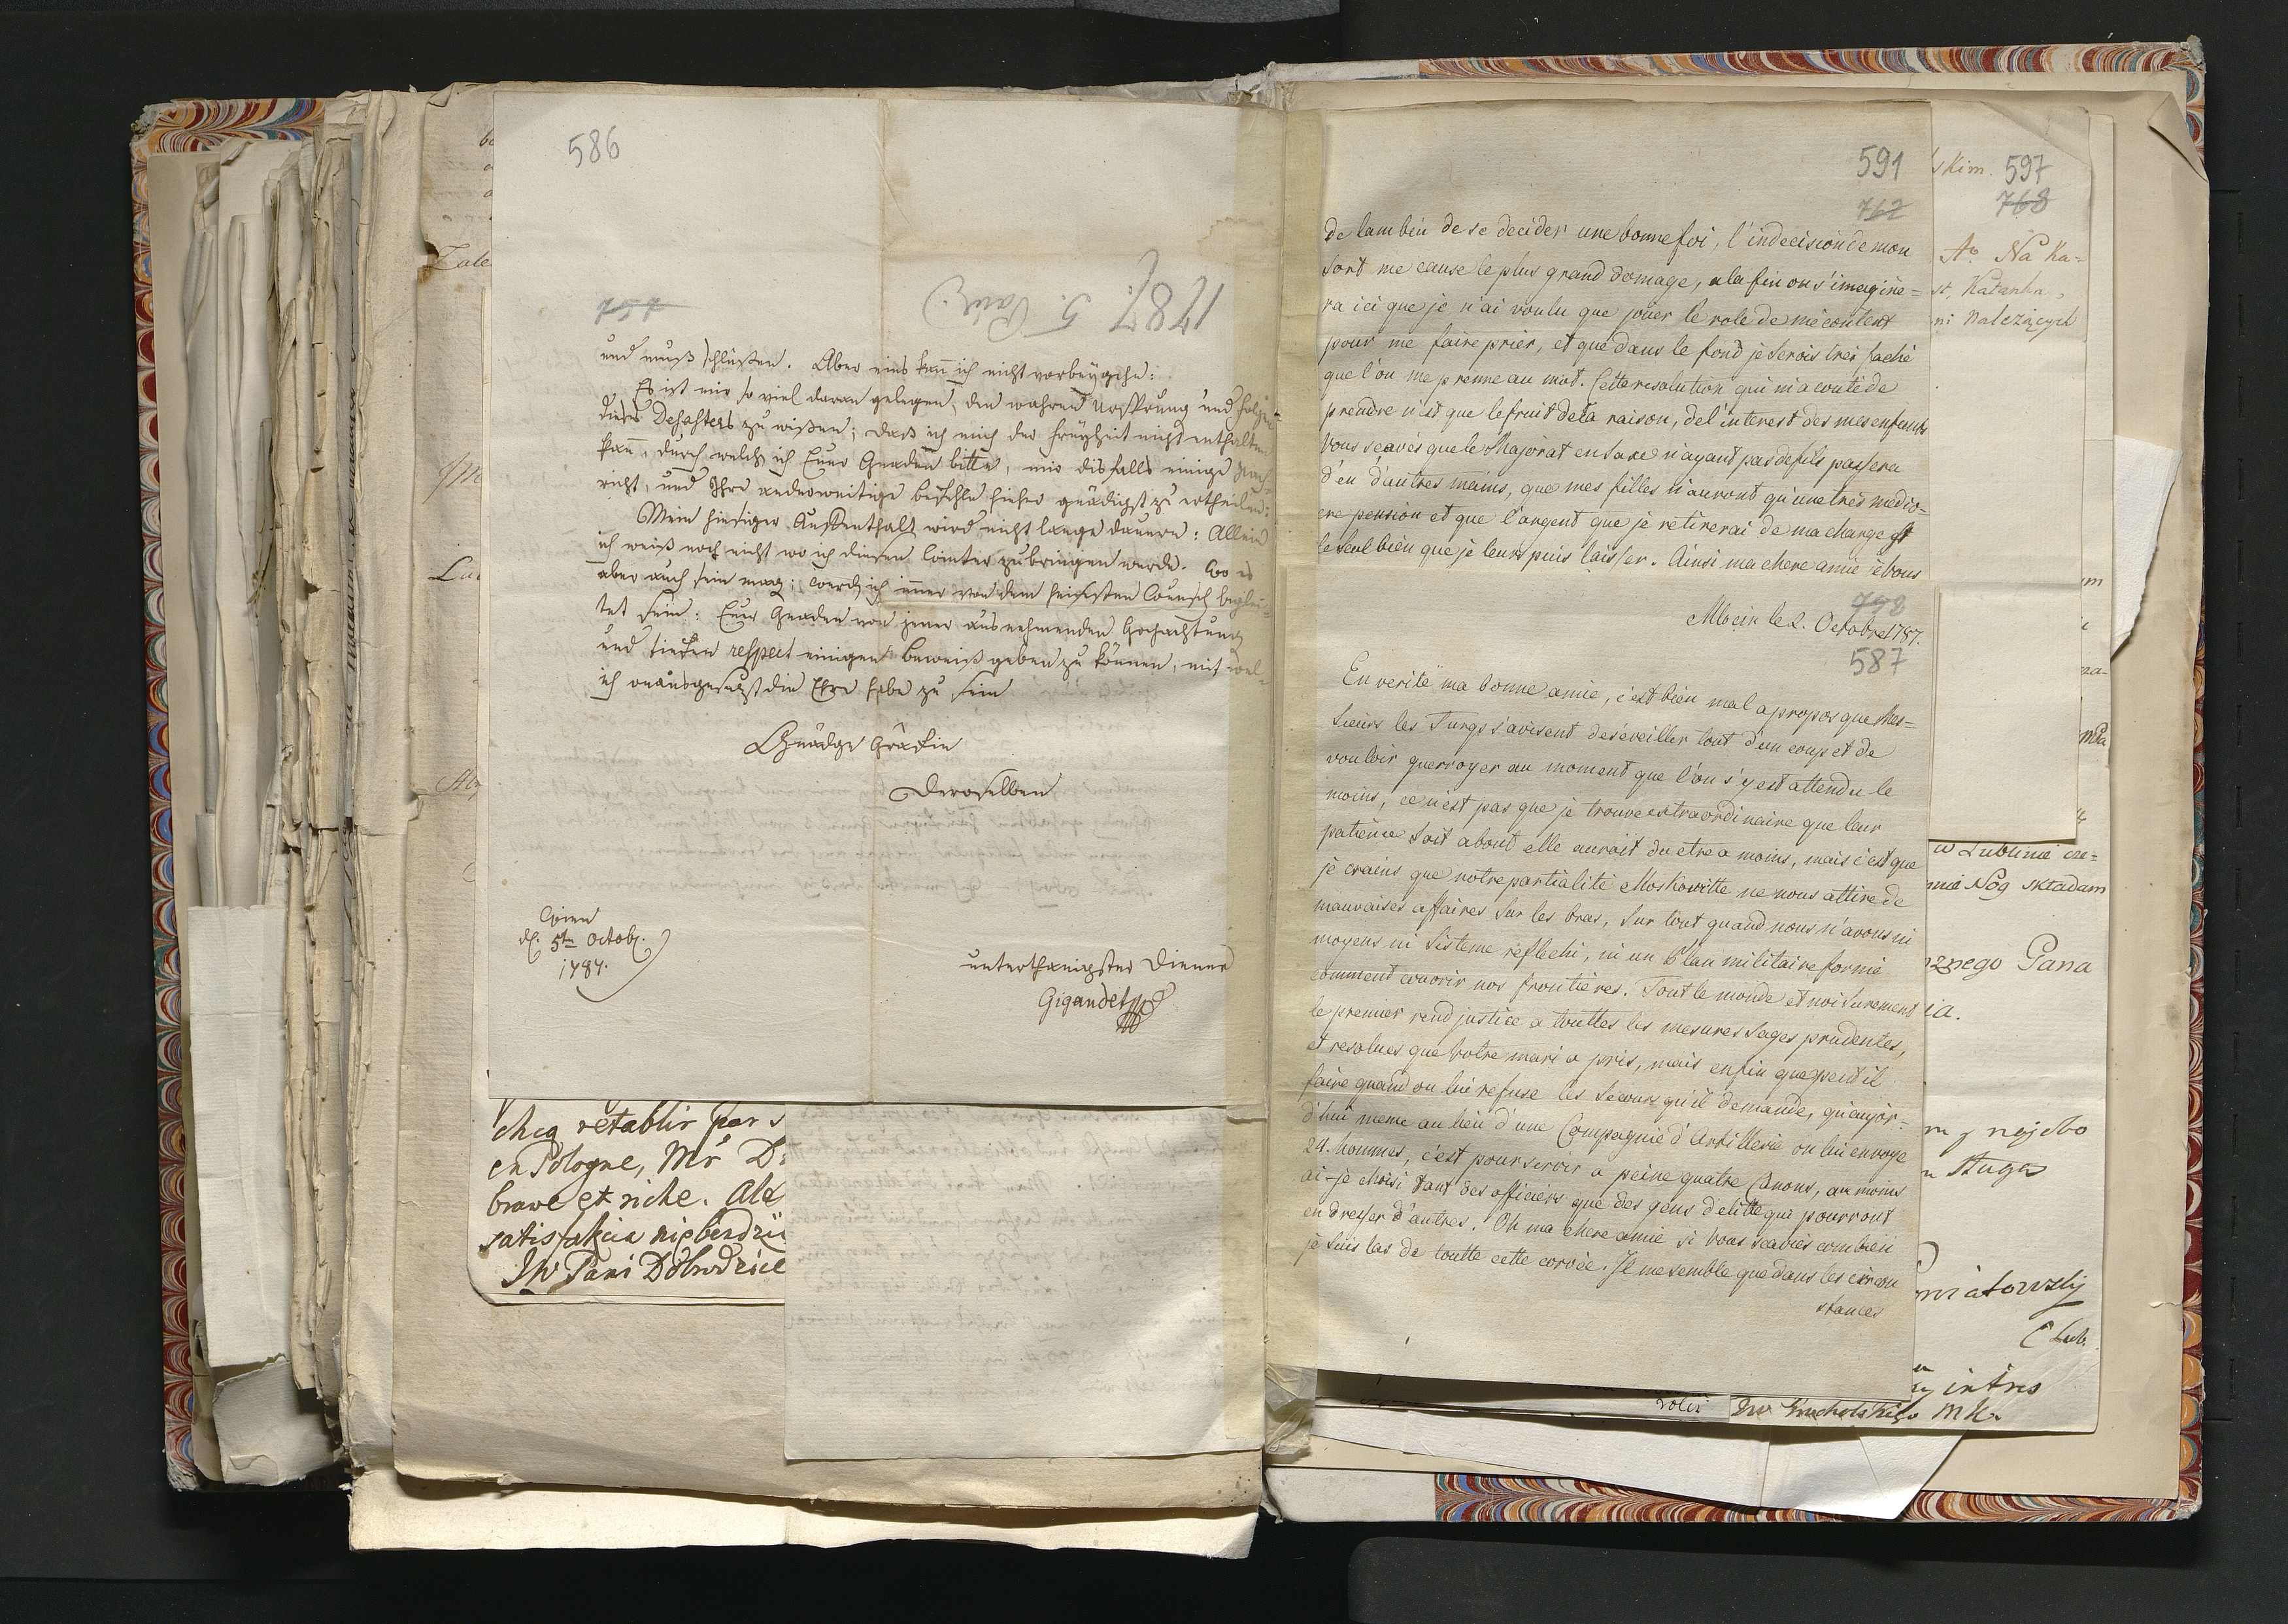 586
1787. 5. Paźdz.
und muß schlüßen. Aber eins kan ich nicht vorbeygehn:
Es ist mir so viel daran gelegen, den wahren Ursprung und Folgen
dieses Desasters zu wißen; daß ich mich der Freyheit nicht enthalten
kan, durch welche ich Euer Gnaden bitte, mir disfalls einige Nach=
richt, und Ihre anderweitige Befehle hieher gnädigst zu ertheilen:
Mein hiesiger Auffenthalt wird nicht lange dauern: Allein
ich weiß noch nicht wo ich diesen Winter zubringen werde. Wo es
aber auch sein mag; werde ich immer von dem heissesten Wunsch beglei=
tet sein: Euer Gnaden von jener ausnehmenden Hochachtung
und tiefen respect einigen Beweiß geben zu können, mit wel=
ich unausgesezt die Ehre habe zu sein
Gnädge Gräfin
Deroselben
Wien
d. 5ten Octob.
1787.
unterthänigster Diener
Gigandet
cheg retablir par
en Pologne, Mr D
brave et riche. Ale
satisfakcia
JW Pani Dobrodzice
591
762
de lambin de se decider une bonne foi, l'indecision de mon
sort me cause le plus grand domage, a la fin on s'imagine=
ra ici que je n'ai voulu que jouer le role de mécontent
pour me faire prier, et que dans le fond je serois très faché
que l'on me prenne au mot. Cette resolution qui m'a couté de
prendre n'est que le fruit de la raison, de l'interest des mes enfants
Vous sçavés que le Majorat en Saxe n'ayant pas de fils passera
d'en d'autres mains, que mes filles n'auront qu'une très medio=
cre pension et que l'argent que je retirerai de ma charge est
le seul bien que je leurs puis laisser. Ainsi ma chere amie je vous
798
le 2. Octobre 1787.
587
En verité ma bonne amie, c'est bien mal a propos que Mes=
sieurs les Turqs s'avisent de s'eveiller tout d'un coup et de
vouloir guerroyer au moment que l'on s'y est attendu le
moins, ce n'est pas que je trouve extraordinaire que leur
patience soit about elle auroit du etre a moins, mais c'est que
je crains que notre partialité Moskowitte ne nous attire de
mauvaises affaires sur les bras, sur tout quand nous n'avons ni
moyens ni sisteme reflechi, ni un Plan militaire formé
comment couvrir nos frontières. Tout le monde et moi surement
le premier rend justice a touttes les mesures sages prudentes,
et resolues que votre mari a pris, mais enfin que peut il
faire quand on lui refuse les secours qu'il demande, qu'aujor=
d'hui meme au lieu d'une Compagnie d'Artillerie on lui envoye
24. hommes, c'est pour servir a peine quatre Canons, au moins
ai-je choisi tant des officiers que des gens d'elitte que pourront
en dresser d'autres. Oh ma chere amie si vous scaviés combien
je suis las de toutte cette corvée. Il me semble que dans les circon
stances
skim. 597
768
Ao Na Ka=
st, Katanka,
ni nalezących
w Lublinie cze=
mie Nóg składam
znego Pana
ia.
m y nayebo
n Sługa
oniatowski
C Lub.
intres
JW Grocholskiego MK.